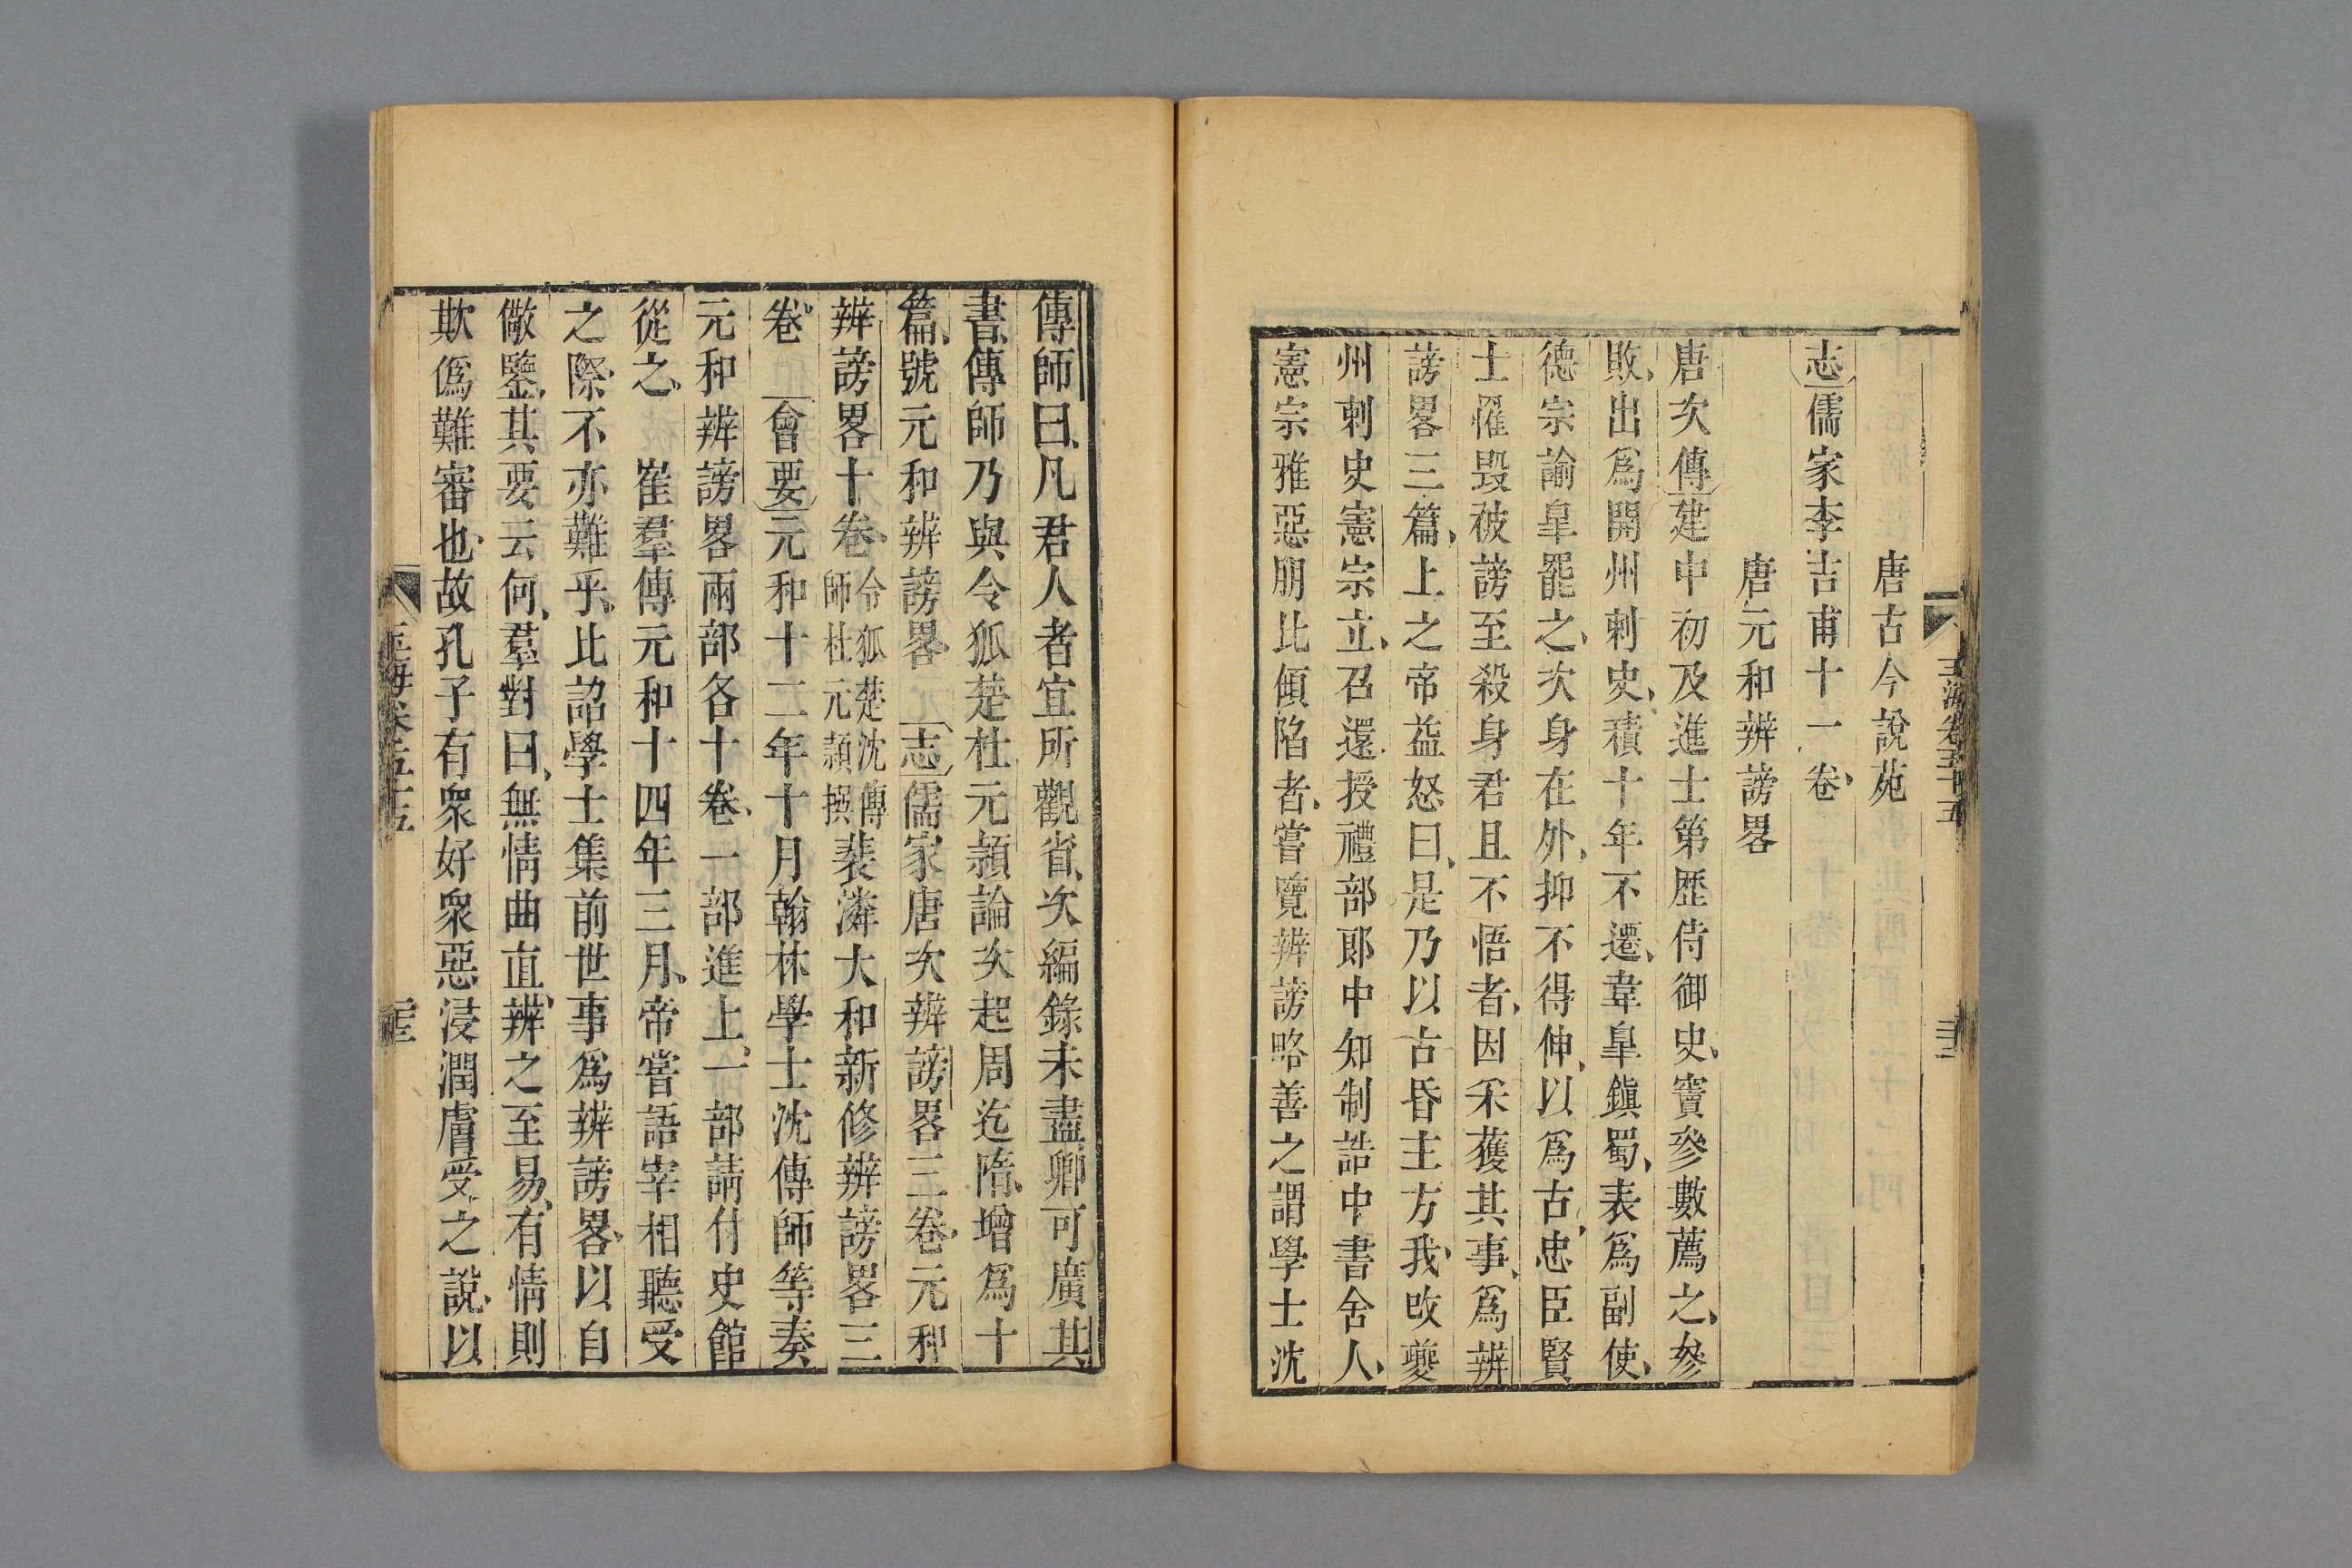 唐古今說苑
志儒家李吉甫十一卷
唐元和辨謗畧
唐次傳建中初及進士第歷侍御史竇參數薦之參
敗出爲開州刺史積十年不遷韋臯鎭蜀表爲副使
德宗諭臯罷之次身在外抑不得伸以爲古忠臣賢
士罹毀被謗至殺身君且不悟者因采獲其事爲辨
謗畧三篇上之帝益怒曰是乃以古昏主方我攺夔
州刺史憲宗立召還授禮部郎中知制誥中書舍人
憲宗雅惡朋比傾陷者嘗覽辨謗略善之謂學士沈
傳師曰凡君人者宜所觀省次編錄未盡卿可廣其
書傳師乃與令狐楚杜元潁論次起周迄隋增爲十
篇號元和辨謗畧志儒家唐次辨謗畧三卷元和
辨謗畧十卷令狐楚沈傳師杜元潁撰裴潾大和新修辨謗畧三
卷會要元和十二年十月翰林學士沈傳師等奏
元和辨謗畧兩部各十卷一部進上一部請付史館
從之崔羣傳元和十四年三月帝嘗語宰相聽受
之際不亦難乎比詔學士集前世事爲辨謗畧以自
儆鑒其要云何羣對曰無情曲直辨之至易有情則
欺僞難審也故孔子有衆好衆惡浸潤膚受之說以
玉海卷五十五